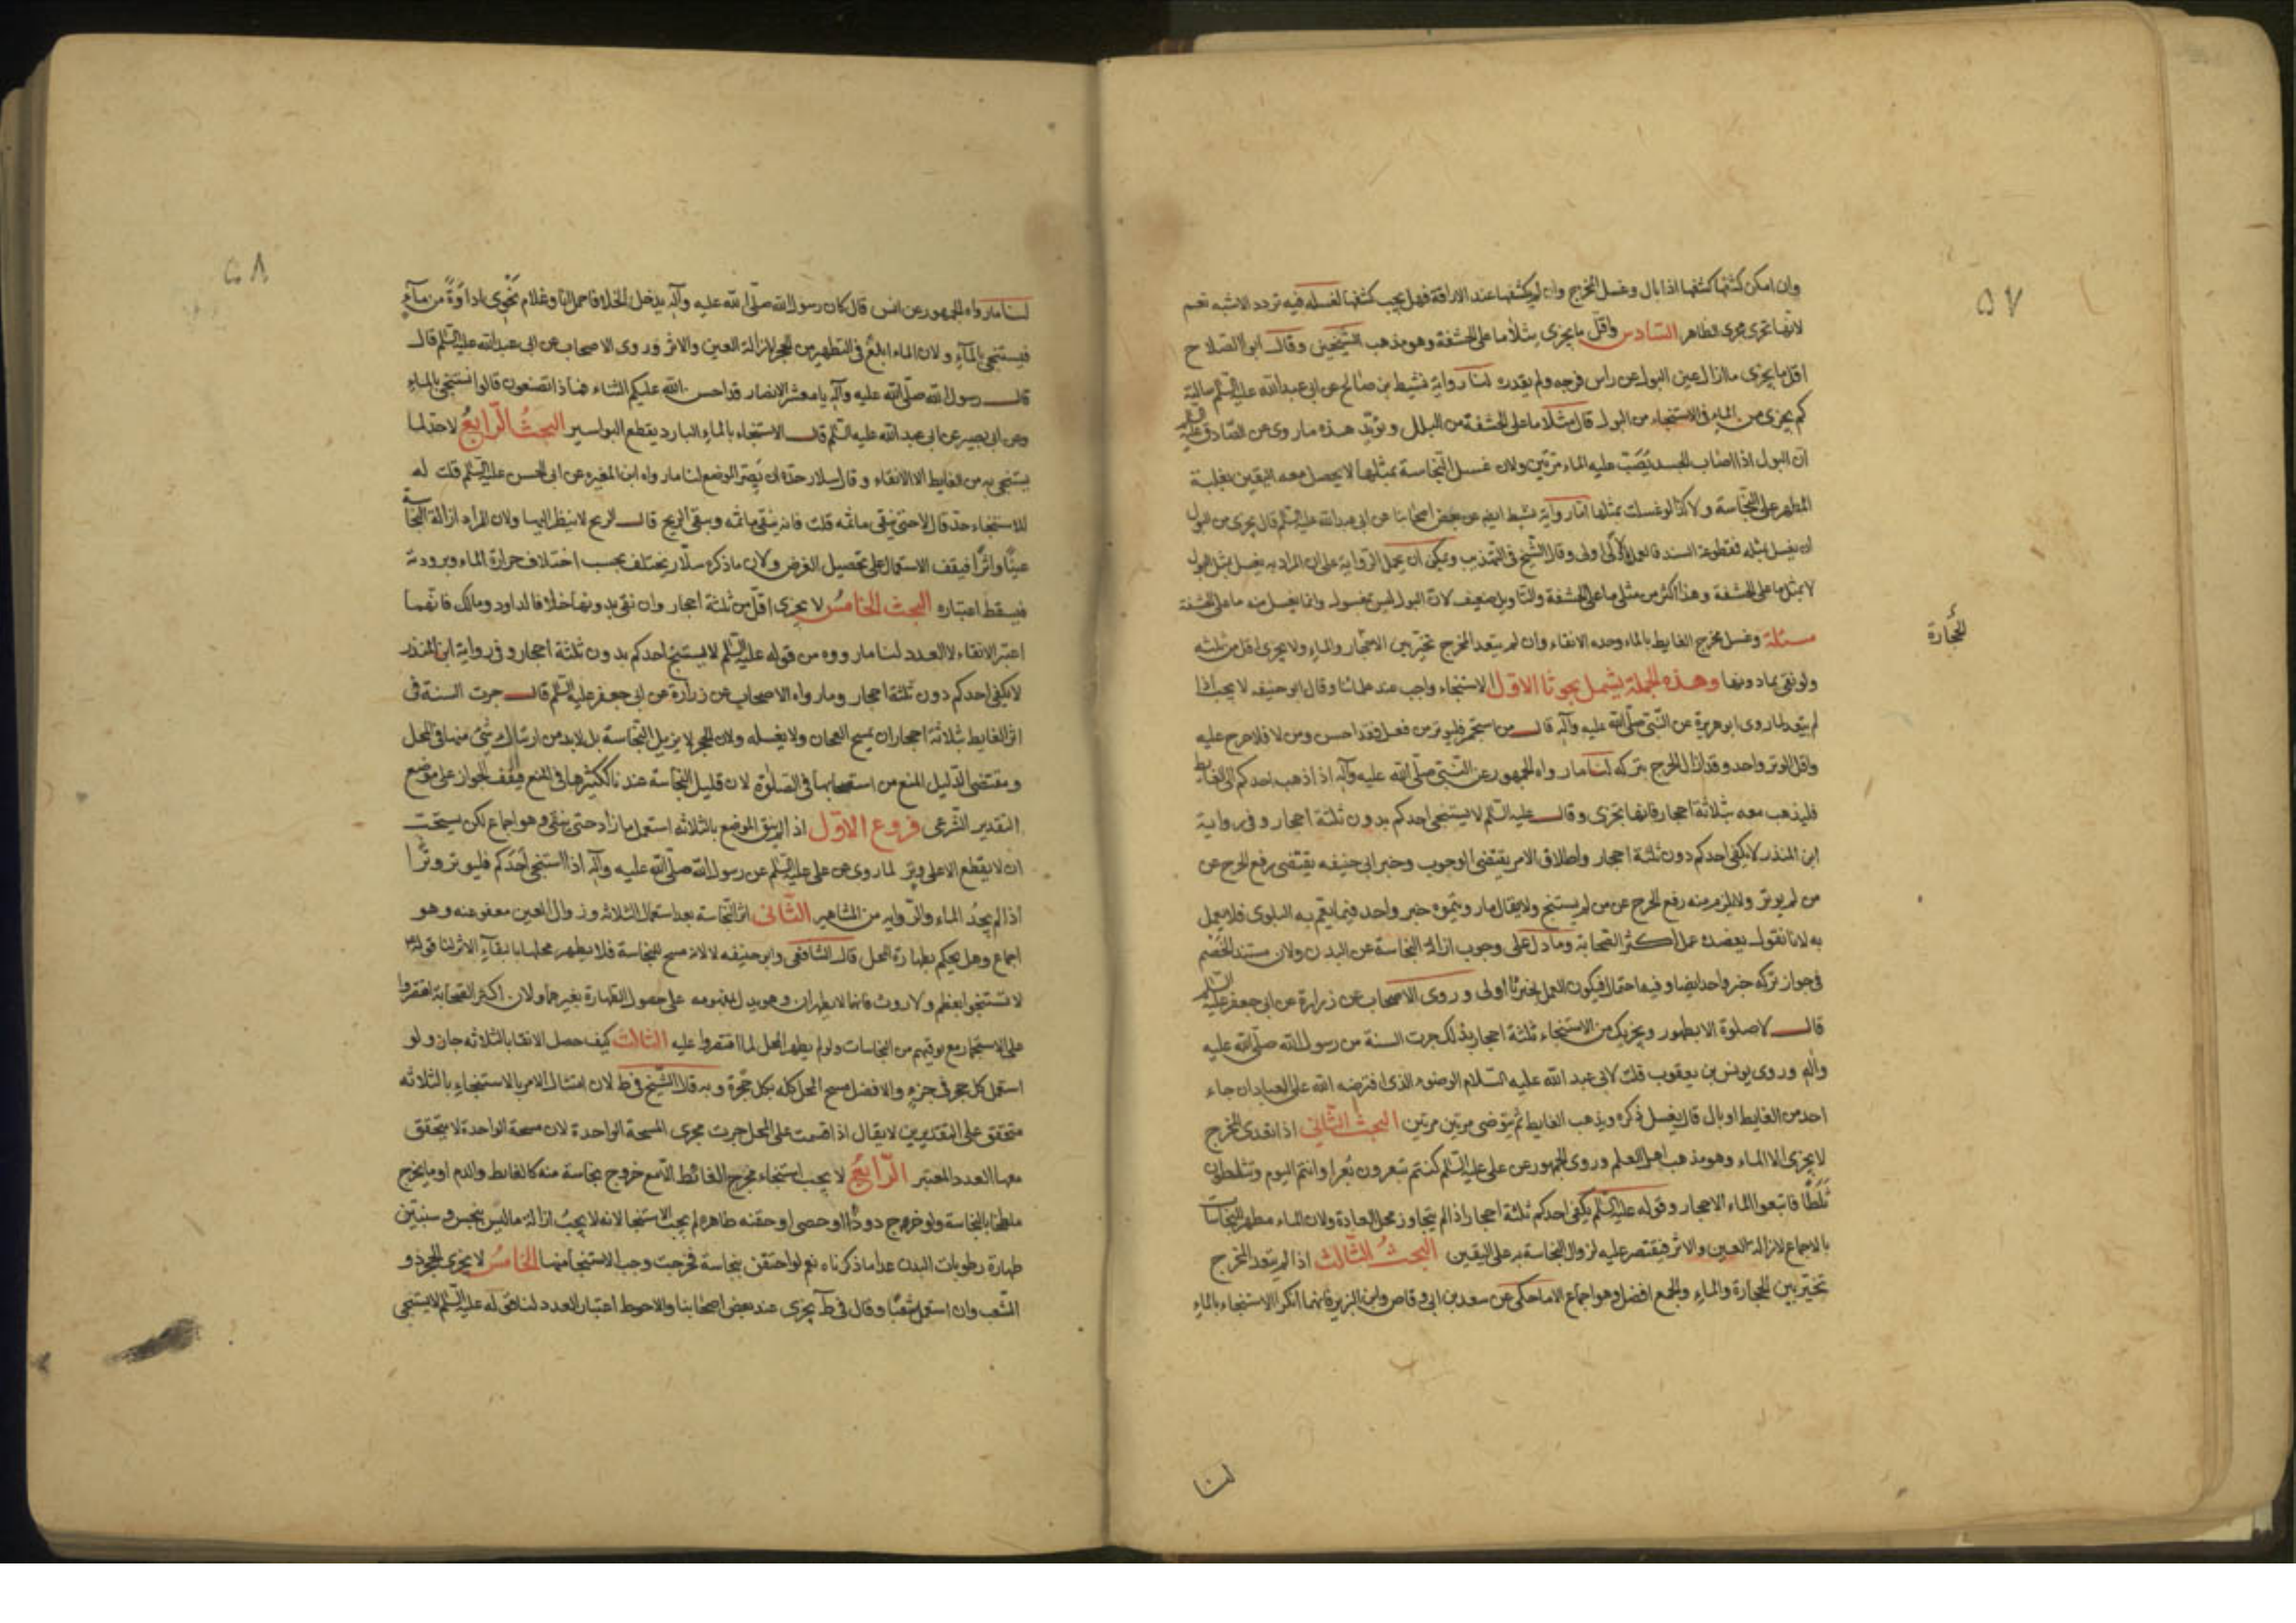 ٥٧
وان امكن كشفها كشفها اذا بال وغسل المخرج وان لم يكشفها عند الاراقة فهل يجب كشفها لغسله فيه تردد الاشبه نعم
لانها تجرى مجرى الظاهر السّادس واقلّ ما يجزى مثلا ما على الحشفة وهو مذهب الشيخين وقال ابو الصّلاح
اقل ما يجزى ما ازال عين البول عن راس فرجه ولم يقدره لنا رواية نشيط بن صالح عن ابى عبد الله عليه السّلم سالته
كم يجزى من الماء فى الاستنجاء من البول قال مثلا ما على الحشفة من البلل ويؤيّد هذه ما روى عن الصّادق عليه السّلم
انّ البول اذا اصاب الجسد يُصَبّ عليه الماء مرّتين ولان غسل النّجاسة بمثلها لا يحصل معه اليقين بغلبة
المطهر على النّجاسة ولا كذا لو غسلت بمثليها امّا رواية نشيط ايضا عن بعض اصحابنا عن ابى عبد الله عليه السّلم قال يجزى من البول
ان يغسل بمثله فمقطوعة السند فالعمل بالاولى اولى وقال الشّيخ فى التّهذيب ويمكن ان يحمل الرّواية على ان المراد به يغسل بمثل البول
لا بمثل ما على الحشفة وهذا اكثر من مثلى ما على الحشفة والتّاويل ضعيف لانّ البول ليس بمغسول وانما يغسل منه ما على الحشفة
مسئلة وغسل مخرج الغايط بالماء وحده الانقاء وان لم يتعد المخرج تخيّر بين الاحجار والماء ولا يجزى اقل من ثلثه
الحجارة
ولو نقى بما دونها وهذه الجملة يشمل بحوثا الاوّل الاستنجاء واجب عند علمائنا وقال ابو حنيفه لا يجب اذا
لم يتعد لما روى ابو هريرة عن النّبى صلّى الله عليه وآله قال من استجمر فليوتر من فعل فقد احسن ومن لا فلا حرج عليه
واقل الوتر واحد وقد ازال الحرج بتركه لنا ما رواه الجمهور عن النّبى صلّى الله عليه وآله اذا ذهب احدكم الى الغايط
فليذهب معه بثلاثة احجار فانها تجزى وقال عليه السّلم لا يستنجى احدكم بدون ثلثة احجار وفى رواية
ابن المنذر لا يكفى احدكم دون ثلثة احجار واطلاق الامر يقتضى الوجوب وخبر ابى حنيفه يقتضى رفع الحرج عن
من لم يوتر ولا يلزم منه رفع الحرج عن من لم يستنج ولا يقال ما رويتموه خبر واحد فيما يعم به البلوى فلا يعمل
به لانا نقول يعضده عمل اكثر الصّحابة وما دل على وجوب ازالة النجاسة عن البدن ولان مستند الخصم
فى جواز تركه خبر واحد ايضا وفيه احتمال فيكون العمل بخبرنا اولى وروى الاصحاب عن زرارة عن ابى جعفر عليه السّلم
قال لا صلوة الا بطهور ويجزيك من الاستنجاء ثلثة احجار بذلك جرت السنة من رسول الله صلّى الله عليه
وآله وروى يونس بن يعقوب قلت لابى عبد الله عليه السّلام الوضوء الذى افترضه الله على العباد ان جاء
احد من الغايط او بال قال يغسل ذكره ويذهب الغايط ثم يتوضى مرتين مرتين البحث الثّانى اذا تعدى المخرج
لا يجزى الا الماء وهو مذهب اهل العلم وروى الجمهور عن على عليه السّلم كنتم تبعرون بُعرا وانتم اليوم وتثلطون
ثَلَطًا فاتبعوا الماء الاحجار وقوله عليه السّلم يكفى احدكم ثلثة احجار اذا لم يتجاوز محل العادة ولان الماء مطهر للنجاسات
بالاجماع لازالته العين والاثر فيقتصر عليه لزوال النجاسة به على اليقين البحثُ الثّالث اذا لم يتعد المخرج
تخيّر بين الحجارة والماء والجمع افضل وهو اجماع الا ما حكى عن سعد بن ابى وقاص وابن الزبير فانهما انكرا الاستنجاء بالماء
لنا
٥٨
لنا ما رواه الجمهور عن انس قال كان رسول الله صلّى الله عليه وآله يدخل الخلا فاحمل انا وغلام نحوى اداوَةً من ماءٍ
فيستنجى بالماء ولان الماء ابلغُ فى التطهير من الحجر لازالة العين والاثر وروى الاصحاب عن ابى عبد الله عليه السّلم قال
قال رسول الله صلّى الله عليه وآله يا معشر الانصار قد احسن الله عليكم الثناء فماذا تصنعون قالوا نستنجى بالماءِ
وعن ابى بصير عن ابى عبد الله عليه السّلم قال الاستنجاء بالماء البارد يقطع البواسير البحثُ الرّابعُ لا حدّ لما
يستنجى به من الغايط الا الانقاء وقال سلار حدّه ان يَصِرّ الموضع لنا ما رواه ابن المغيره عن ابى الحسن عليه السّلم قلت له
للاستنجاء حدّ قال لا حتى ينقى ما ثمّه قلت فانه ينقى ما ثمّه ويبقى الريح قال الريح لا ينظر اليها ولان المراد ازالة النجاسة
عينًا واثرًا فيقف الاستعمال على تحصيل الغرض ولان ما ذكره سلّار يختلف بحسب اختلاف حرارة الماء وبرودته
فيسقط اعتباره البحث الخامسُ لا يجزى اقلّ من ثلثة احجار وان نقى بدونها خلافا لداود ومالك فانّهما
اعتبرا الانقاء لا العدد لنا ما رووه من قوله عليه السّلم لا يستنج احدكم بدون ثلثة احجار وفى رواية ابن المنذر
لا يكفى احدكم دون ثلثة احجار وما رواه الاصحاب عن زرارة عن ابى جعفر عليه السّلم قال جرت السنة فى
اثر الغايط بثلاثة احجار ان يمسح العجان ولا يغسله ولان الحجر لا يزيل النّجاسة بل لابد من ارسال شئ منها فى المحل
ومقتضى الدّليل المنع من استصحابها فى الصلوة لان قليل النجاسة عندنا ككثيرها فى المنع فيقف الجواز على موضع
التقدير الشّرعى فروع الاوّل اذا لم ينق الموضع بالثلاثه استعمل ما زاد حتى ينقى وهو اجماع لكن يستحبّ
ان لا يقطع الا على وتر لما روى عن على عليه السّلم عن رسول الله صلّى الله عليه وآله اذا استنجى احدكم فليوتر وترًا
اذا لم يجدُ الماء والرّوايه من المشاهير الثّانى اثر النّجاسة بعد استعمال الثلاثه وزوال العين معفو عنه وهو
اجماع وهل يحكم بطهارة المحل قال الشافعى وابو حنيفه لا لانه مسح للنجاسة فلا يطهر محلها با بقاء الاثر لنا قوله
لا تستنجوا بعظم ولا روث فانهما لا يطهران وهو يدل بمفهومه على حصول الطهارة بغيرهما ولان اكثر الصّحابة اقتصروا
على الاستجمار مع توقيهم من النجاسات ولو لم يطهر المحل لما اقتصروا عليه الثالث كيف حصل الانقا بالثلاثه جاز ولو
استعمل كل حجر فى جزءٍ والافضل مسح المحل كله بكل حَجرة وبه قال الشّيخ فى ط لان امتثال الامر بالاستنجاءِ بالثلاثه
متحقق على التقديرين لا يقال اذا قسمت على المحل جرت مجرى المسحة الواحدة لان مسحة الواحدة لا يتحقق
معها العدد المعتبر الرّابعُ لا يجب استنجاء مخرج الغائط الا مع خروج نجاسة منه كالغايط والدم او ما يخرج
ملطخا بالنجاسة ولو خرج دودًا او حصى او حقنه طاهره لم يجب الاستنجا لانه لا يجبُ ازالة ما ليس بنجس وسنبيّن
طهارة رطوبات البدن عدا ما ذكرناه نعم لو احتقن بنجاسة فخرجت وجب الاستنجا منها الخامسُ لا يجزى الحجر ذو
الشّعب وان استعمل شُعبًا وقال فى ط يجزى عند بعض اصحابنا والاحوط اعتبار العدد لنا قوله عليه السّلم لا يستنجى